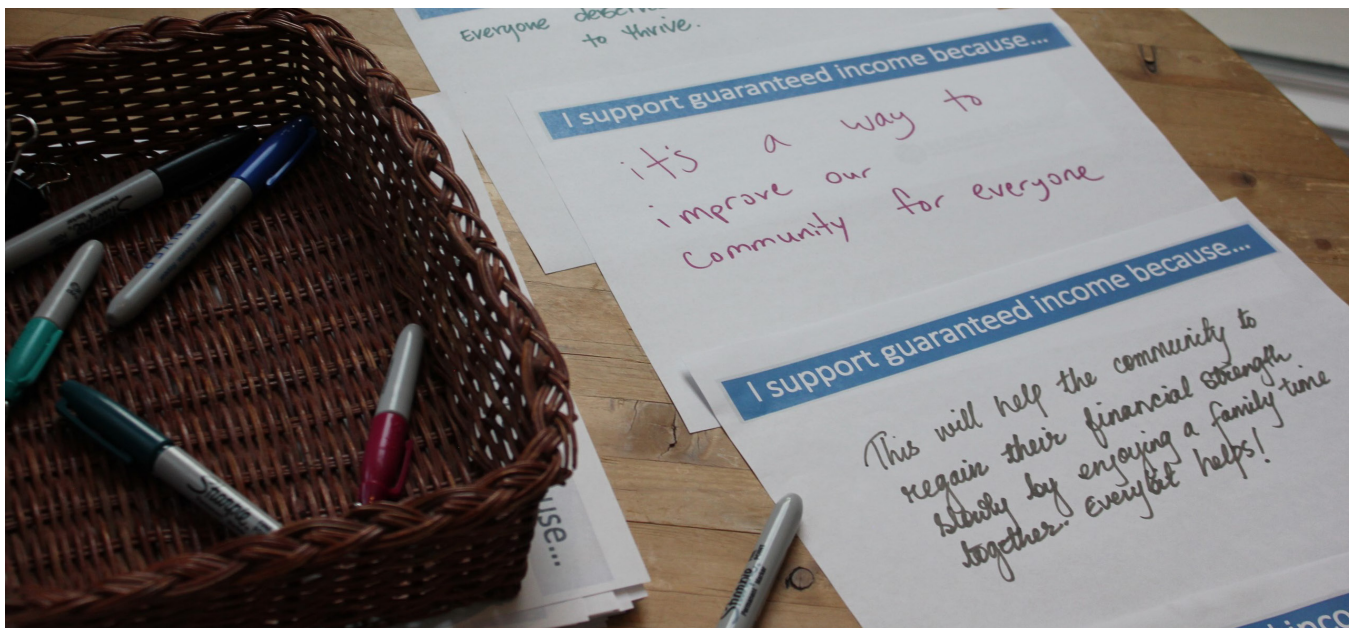 Everyone
to thrive.
I support guaranteed income because...
it's a way to
improve our
community for everyone
I support guaranteed income because...
This will help the community to
regain their financial strength
slowly by enjoying a family time
together. Everybit helps!
Sharpie
Sharpie
Sharpie
use...